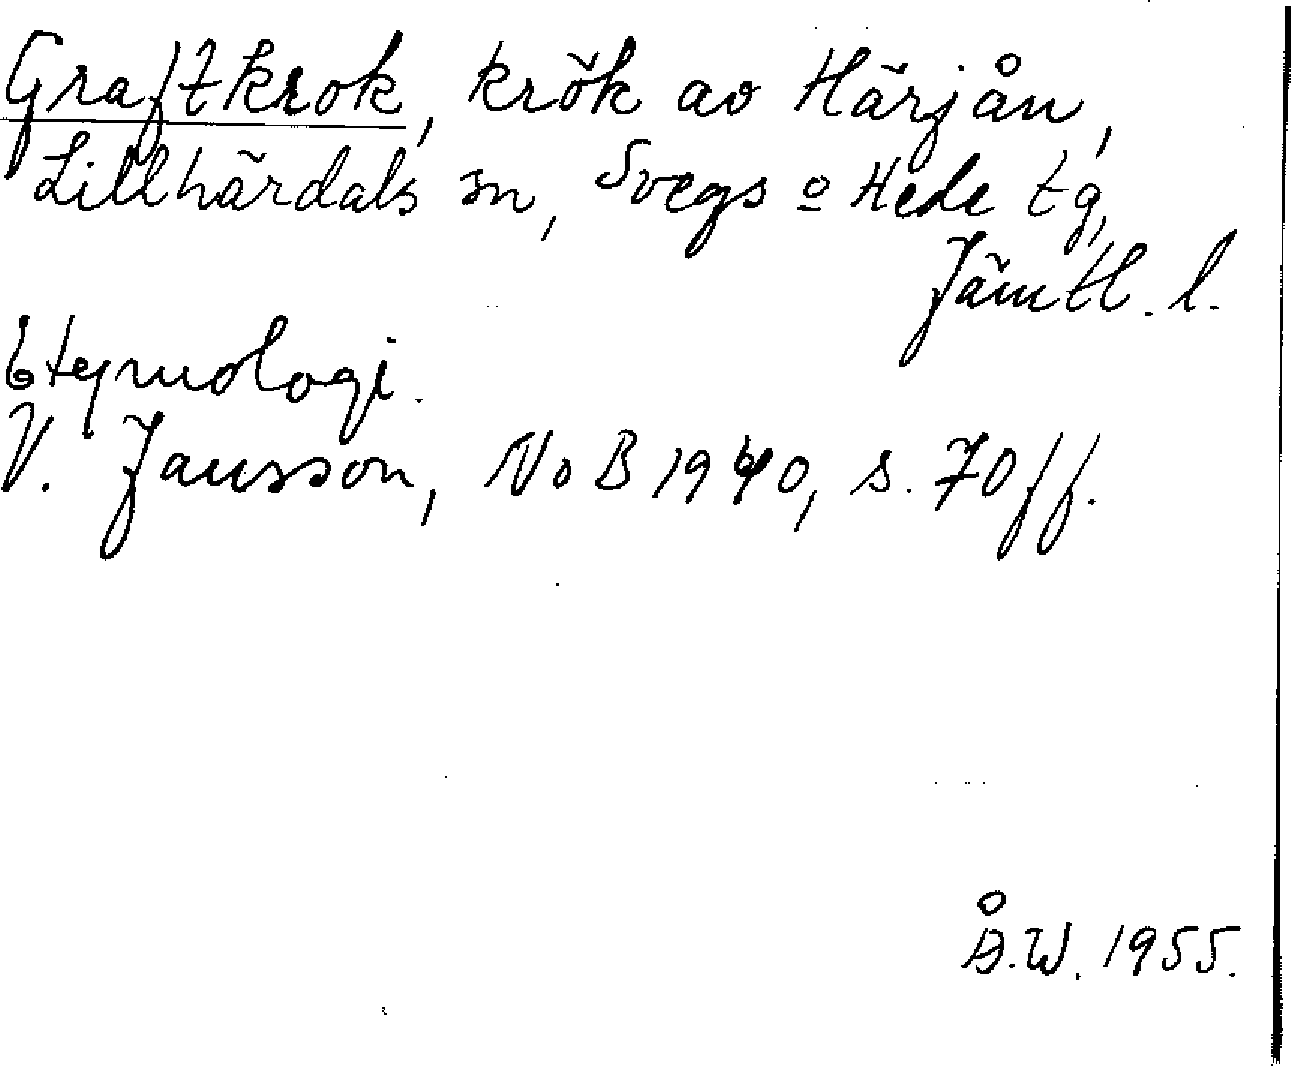 Graftkrok, krök av Härjån,
Lillhärdals sn, Svegs o Hede tg,
Jämtl. l.
Etymologi.
V. Jansson, NoB 1940, s. 70 ff.
Å.W. 1955.